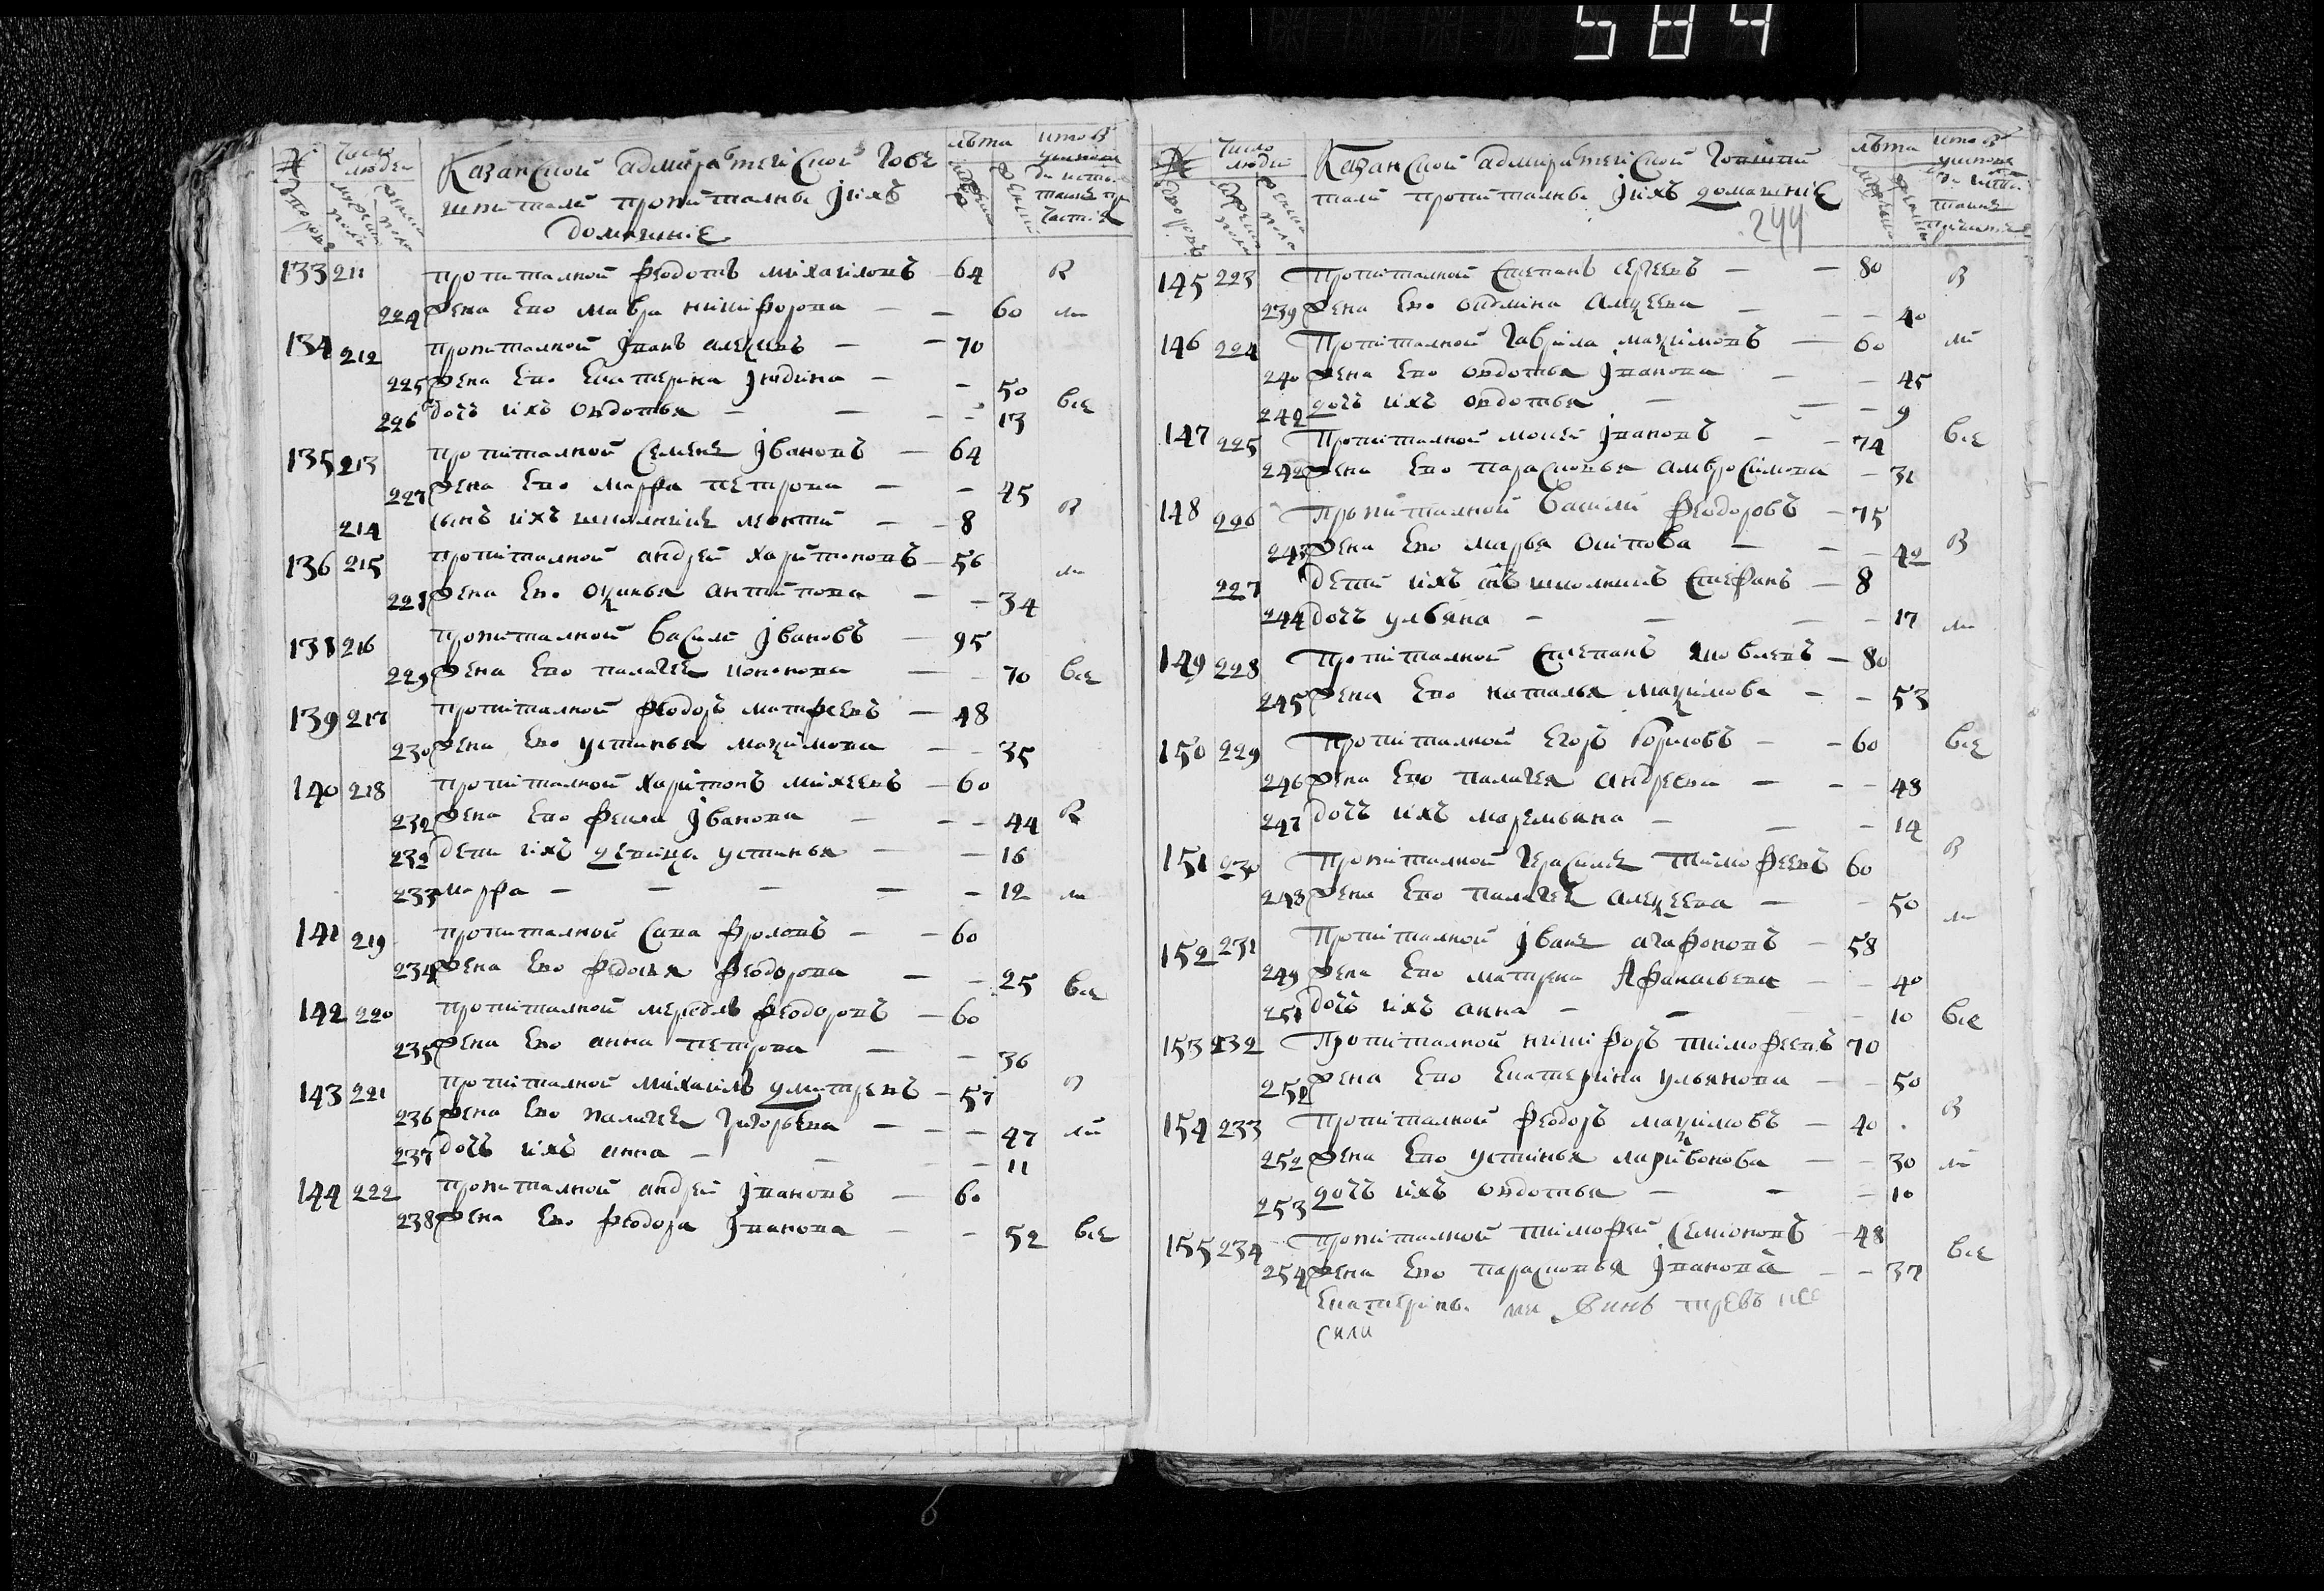 584
№ дворовъ
Число людей
мужеска пола
женска пола
Казанской адмиралтейской Гове
шпитали пропиталны іихъ
домашние
лѣта
133 211 пропиталной Феодотъ михаиловъ – 64 В
224 Жена Ево мавра никифорова – – 60 ли
134 212 пропиталной Јванъ алеѯиевъ – – 70
225 Жена Ево Екатерина Јюдина – – 50
226 дочь ихъ овдотья – – – 13 все
135 213 пропиталной Семенъ Јвановъ – 64
227 Жена Ево марфа петрова – – 45 В
214 сынъ ихъ школникъ леонтий – – 8
136 215 пропиталной андрей харитоновъ – 56 ли
228 Жена Ево оѯинья антипова – – 34
138 216 пропиталной Василий Јвановъ – 95
229 Жена Ево палагея кононова – – 70 все
139 217 пропиталной Феодоръ матфеевъ – 48
230 Жена Ево устинья маѯимова – – 35
140 218 пропиталной харитонъ михеевъ – 60
232 Жена Ево Фекла Јванова – – – 44 В
232 дети ихъ девица устинья – – 16
233 марфа – – – – – 12 ли
141 219 пропиталной Сава Фроловъ – – 60
234 Жена Ево Федосья Феодорова – – 25 все
142 220 пропиталной Феодоровъ – 60
235 Жена Ево анна петрова – – 36
143 221 пропиталной михаилъ дмитревъ – 57 В
236 Жена Ево палагея Григорьева – – – 47 ли
237 дочь ихъ анна – – – – 11
144 222 пропиталной андрей Јвановъ – 60
238 Жена Ево Феодора Јванова – – 52 все
№ дворовъ
Число людей
Казанской адмиралтейской Гошпи
тали пропиталны Јихъ домашние
244
лѣта
145 223 Пропиталной Степанъ сергеевъ – – 80 В
239 Жена Ево овдокина алеѯеева – – – 40
146 224 Пропиталной Гаврила маѯимовъ – 60 ли
240 Жена Ево овдотья Јванова – – 45
242 дочь ихъ овдотья – – – 9
147 225 Пропиталной мосей Јвановъ – – 74 все
242 Жена Ево парасковья амвросимова – 31
148 226 Пропиталной Василий Феодоровъ – 75
243 Жена Ево марья осипова – – – 42 В
227 дети ихъ школникъ Стефанъ – 8
244 дочь ульяна – – – – 17 ли
149 228 Пропиталной Степанъ яковлевъ – 80
245 Жена Ево наталья маѯимова – – 53
150 229 Пропиталной Егоръ борисовъ – – 60 все
246 Жена Ево палагея андреева – – – 48
247 дочь ихъ маремьяна – – – 14
151 230 Пропиталной Герасимъ тимофеевъ 60 В
248 Жена Ево палагея алеѯеева – – 50 ли
152 231 Пропиталной Јванъ агафоновъ – 58
249 Жена Ево матрена Афанасьева – – 40
251 дочь ихъ анна – – – – 10 все
153 232 Пропиталной никифоръ тимофеевъ 70
252 Жена Ево Екатерина ульянова – – 50
154 233 Пропиталной Феодоръ маѯимовъ – 40 В
252 Жена Ево устинья ларивонова – – 30 ли
253 дочь ихъ овдотья – – – 10
155 234 пропиталной тимофей Семионовъ – 48
254 Жена Ево парасковья Јванова – – 37 все